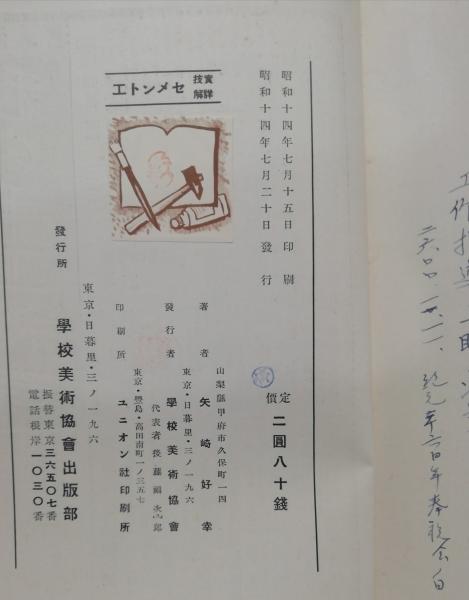 昭和十四年七月十五日印刷
昭和十四年七月二十日發行
實技詳解 セメント工
定價 二圓八十錢
山梨縣甲府市久保町一四
著者 矢崎好幸
東京・日暮里・三ノ一九六
發行者 學校美術協會
代表者 後藤福次郎
東京・豐島・高田南町一ノ三五七
印刷所 ユニオン社印刷所
東京・日暮里・三ノ一九六
發行所 學校美術協會出版部
振替東京三六五〇七番
電話根岸一〇三〇番